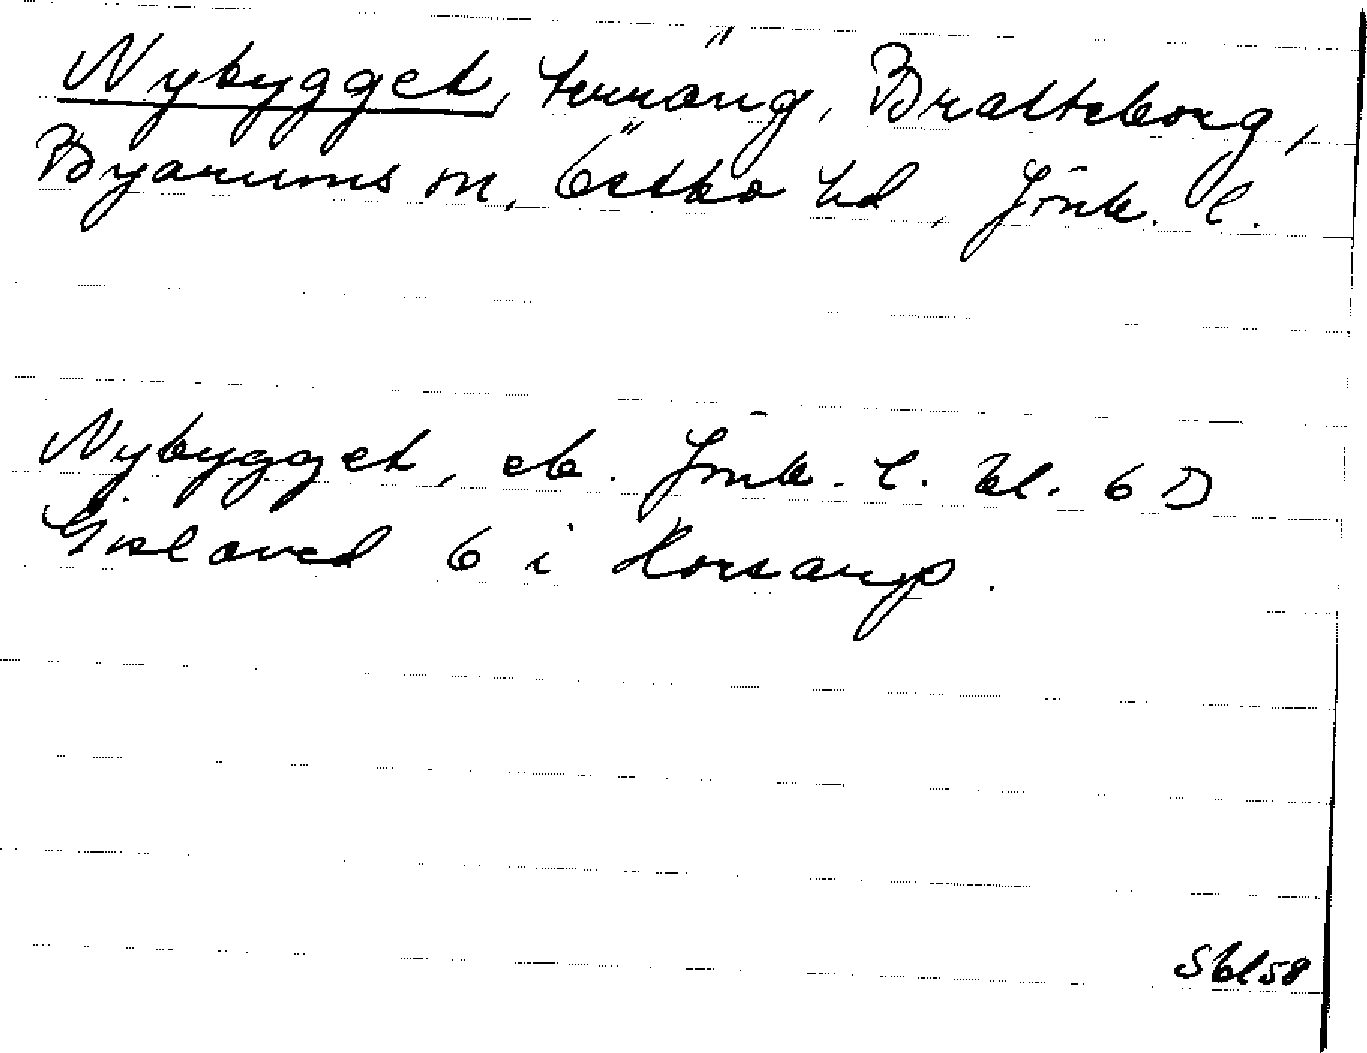 Nybygget, terräng, Bratteborg,
Byarums sn, Östbo hd, Jönk. l.
Nybygget, ek. Jönk. l. bl. 6 D
Gislaved 6 i Horsarp.
Sbl58